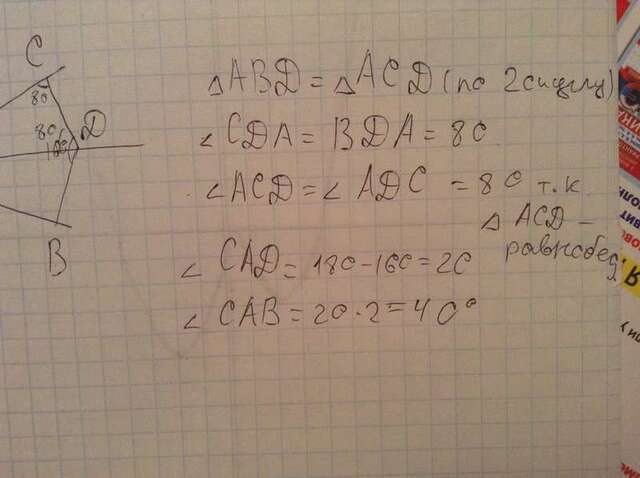 C
80
80
D
B
△ABD = △ACD (по 2
∠CDA = BDA = 80
∠ACD = ∠ADC = 80 т.к.
△ ACD –
равнобед.
∠CAD = 180-160=20
∠CAB = 20·2=40°